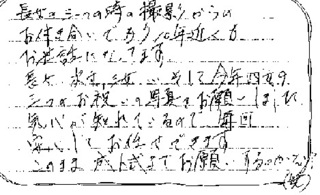 長女の三つの時の撮影からの
お付き合いでもう10年近くも
お世話になってます。
長女、次女、三女、そして今年四女の
三つのお祝いの写真をお願いしました
気心が知れているので毎回
安心してお任せできます
このまま成人式までお願いするのかな？
(笑)